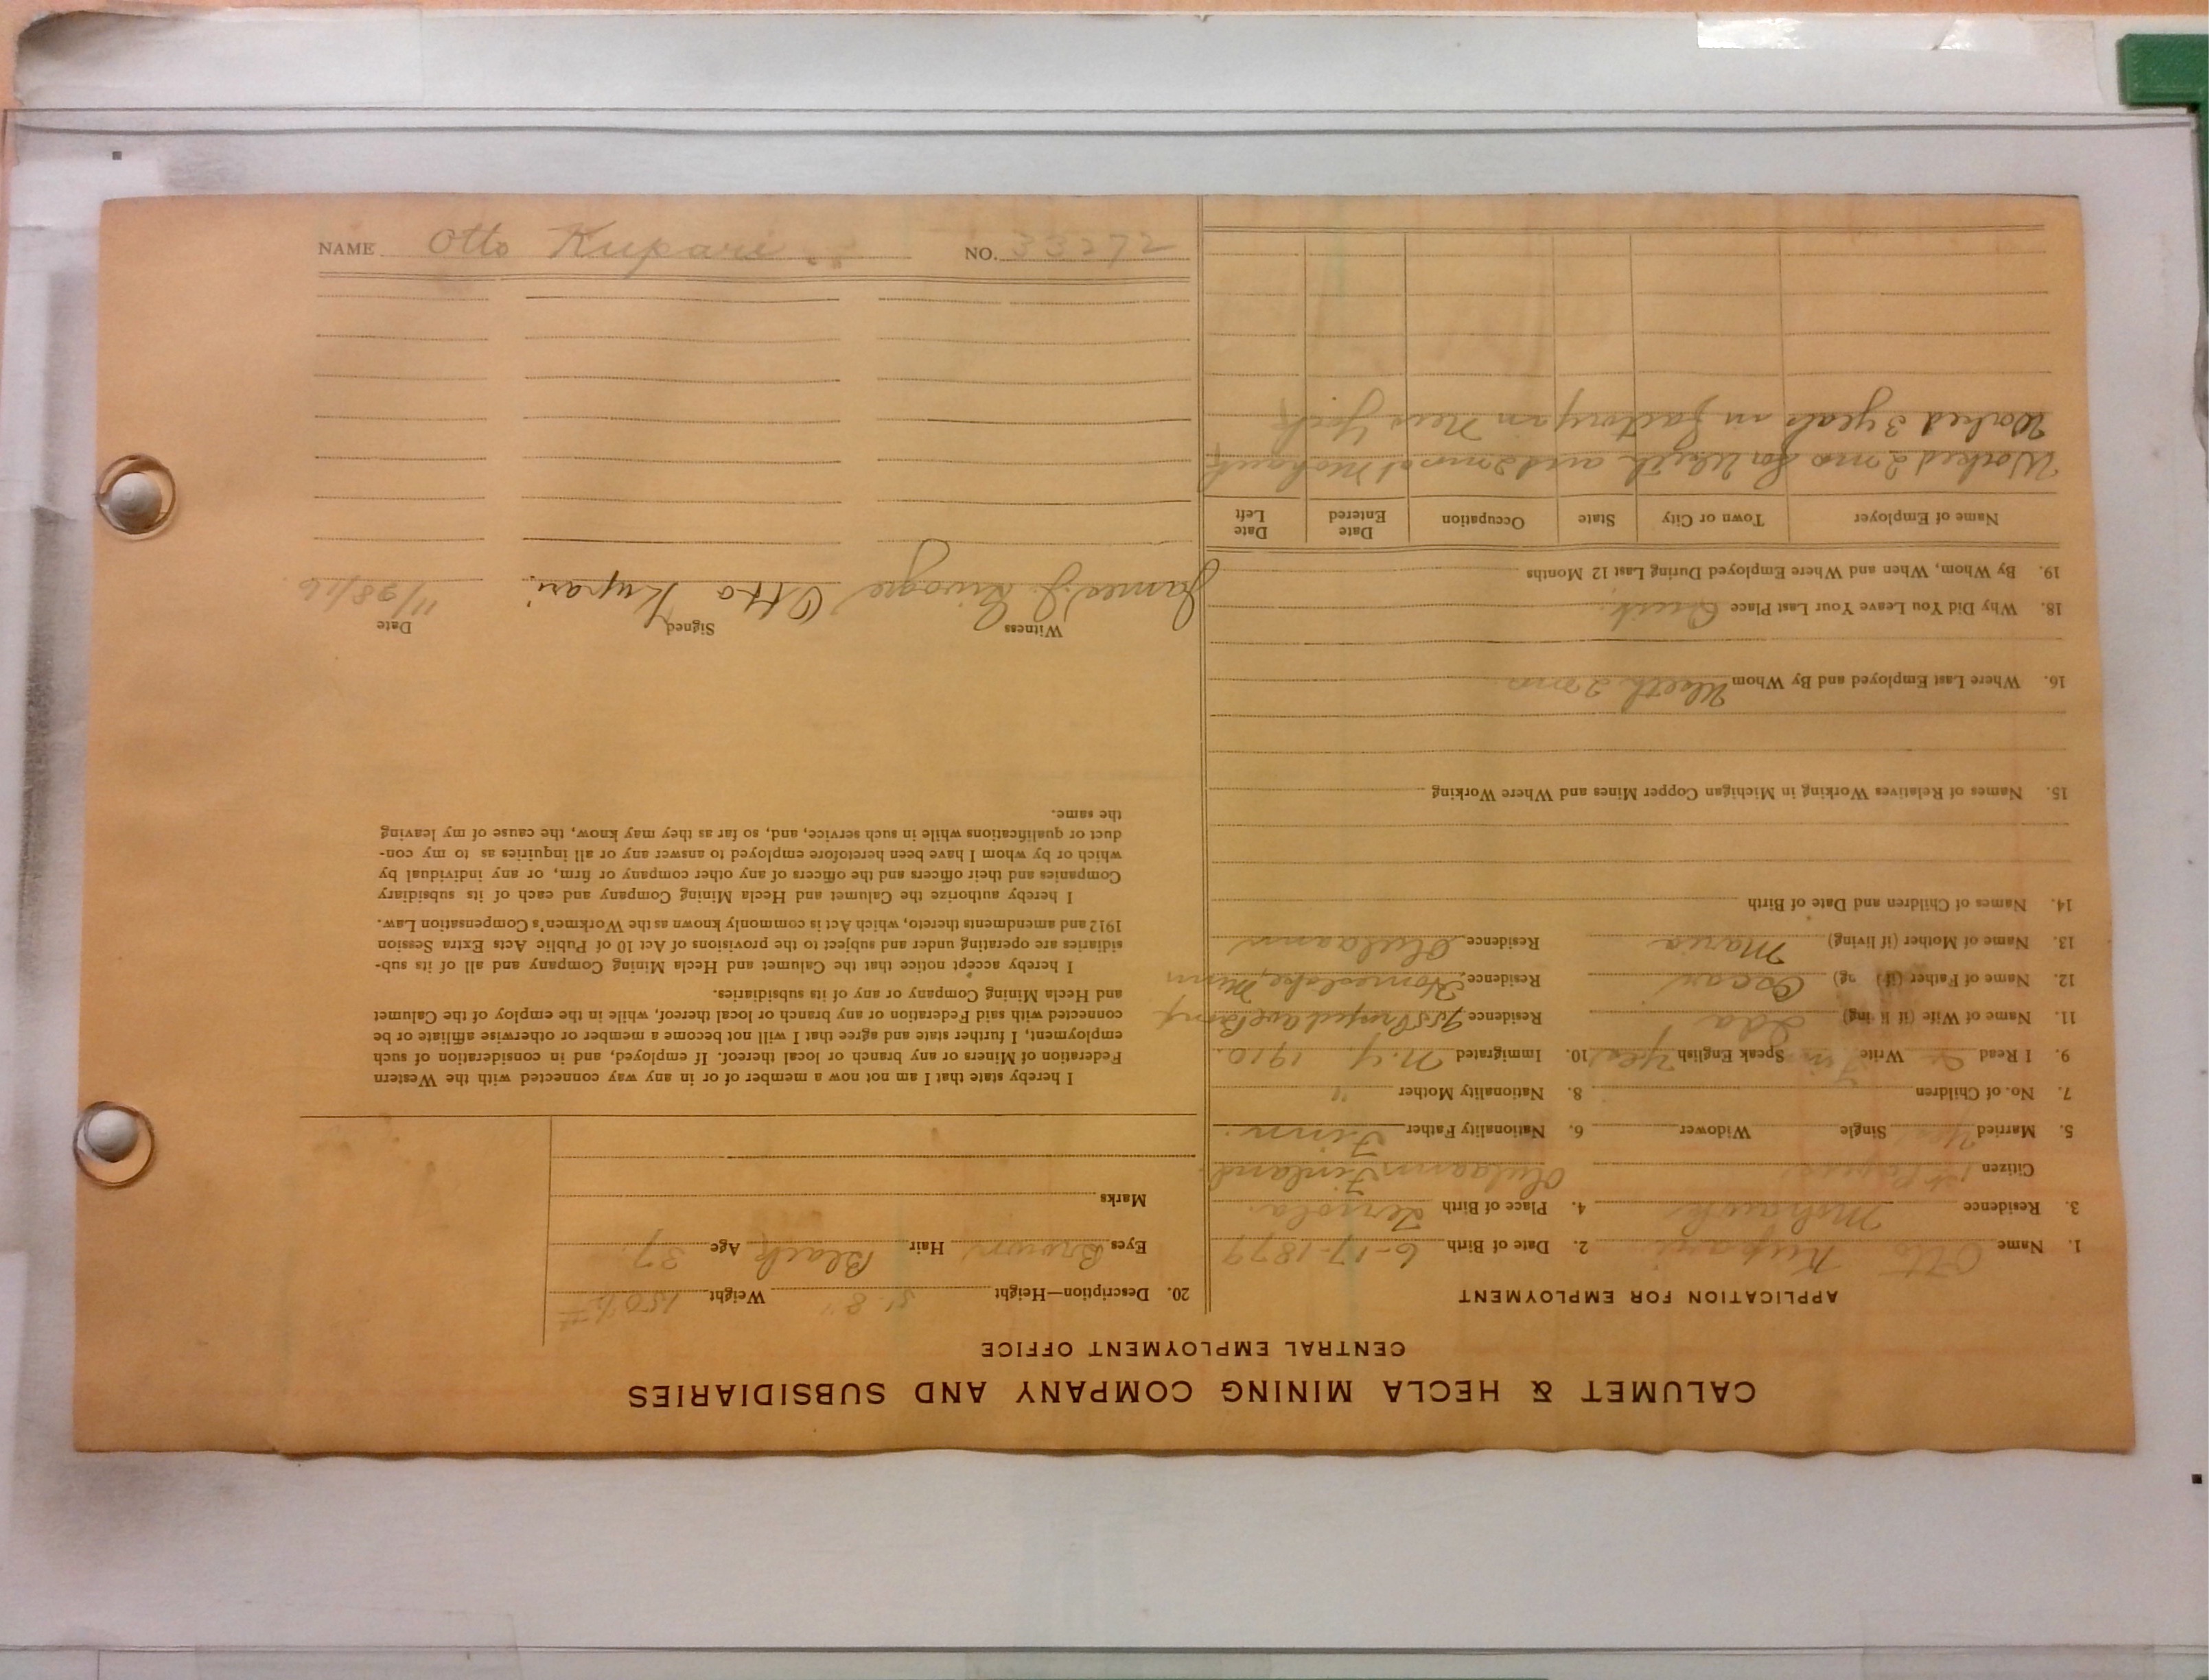 NAME Otto Kupari NO. 33272
CALUMET & HECLA MINING COMPANY AND SUBSIDIARIES
CENTRAL EMPLOYMENT OFFICE
APPLICATION FOR EMPLOYMENT
1. Name Otto Kupari 2. Date of Birth 6-17-1879
3. Residence Mohawk 4. Place of Birth
Citizen 1st Finland
5. Married Yes Single Widower 6. Nationality Father Finn.
7. No. of Children 8. Nationality Mother "
9. I Read & Write Finn Speak English Yes 10. Immigrated N.Y. 1910.
11. Name of Wife (if living) Ida Residence
12. Name of Father (if g) Oscar Residence Minn
13. Name of Mother (if living) Maria Residence
14. Names of Children and Date of Birth
15. Names of Relatives Working in Michigan Copper Mines and Where Working
16. Where Last Employed and By Whom 2 mos
18. Why Did You Leave Your Last Place Quit.
19. By Whom, When and Where Employed During Last 12 Months
Name of Employer Town or City State Occupation Date Entered Date Left
Worked 2 mos for and 2 mos at Mohawk
Worked 3 years in factory in New York
20. Description—Height 5' 8" Weight 150
Eyes Brown Hair Black Age 37
Marks
I hereby state that I am not now a member of or in any way connected with the Western
Federation of Miners or any branch or local thereof. If employed, and in consideration of such
employment, I further state and agree that I will not become a member or otherwise affiliate or be
connected with said Federation or any branch or local thereof, while in the employ of the Calumet
and Hecla Mining Company or any of its subsidiaries.
I hereby accept notice that the Calumet and Hecla Mining Company and all of its sub-
sidiaries are operating under and subject to the provisions of Act 10 of Public Acts Extra Session
1912 and amendments thereto, which Act is commonly known as the Workmen's Compensation Law.
I hereby authorize the Calumet and Hecla Mining Company and each of its subsidiary
Companies and their officers and the officers of any other company or firm, or any individual by
which or by whom I have been heretofore employed to answer any or all inquiries as to my con-
duct or qualifications while in such service, and, so far as they may know, the cause of my leaving
the same.
Witness Signed Date
James J. Otto Kupari. 11/28/16